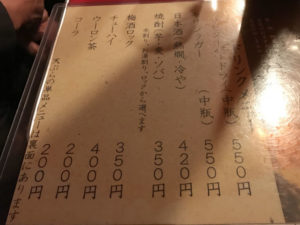 ドリンク
(中瓶) 550円
ラガー (中瓶) 550円
日本酒(熱燗、冷や) 420円
焼酎(芋・麦・ソバ) 350円
水割り、お湯割り、ロックから選べます
梅酒ロック 350円
チューハイ 400円
ウーロン茶 200円
コーラ 200円
単品メニューは裏面にあります